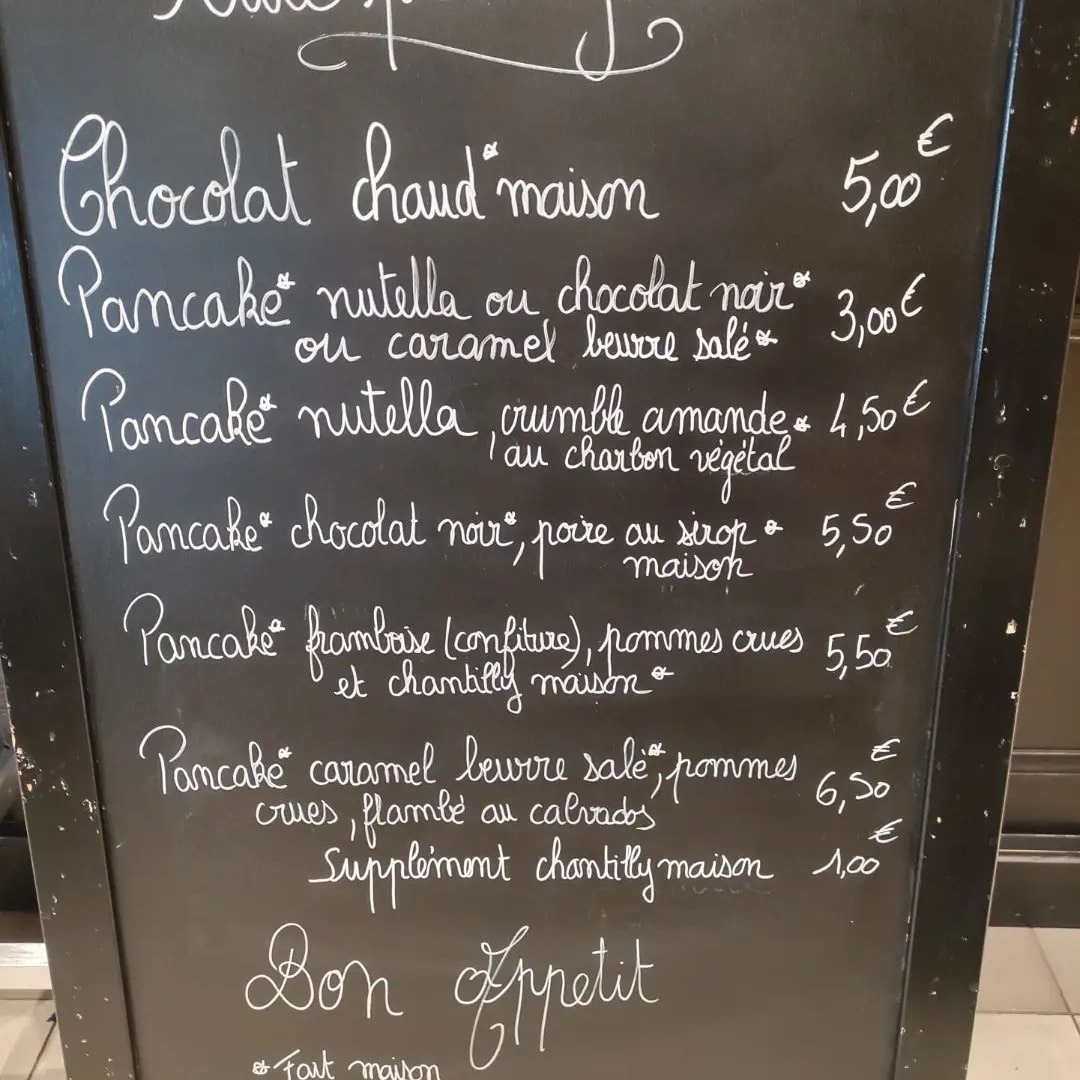 Chocolat chaud* maison 5,00€
Pancake* nutella ou chocolat noir* 3,00€
ou caramel beurre salé*
Pancake* nutella, crumble amande* 4,50€
au charbon végétal
Pancake* chocolat noir*, poire au sirop* 5,50€
maison
Pancake* framboise (confiture), pommes crues 5,50€
et chantilly maison*
Pancake* caramel beurre salé*, pommes 6,50€
crues, flambé au calvados
Supplément chantilly maison 1,00€
Bon Appetit
* Fait maison